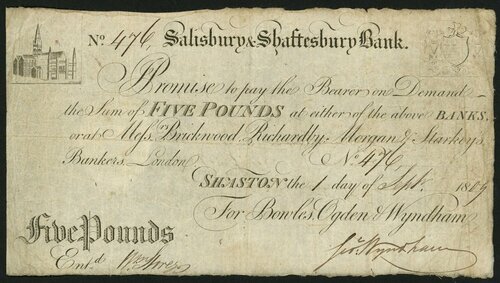 No. 476, Salisbury & Shaftesbury Bank.
Promise to pay the Bearer on Demand
the Sum of FIVE POUNDS at either of the above BANKS,
or at Messrs. Brickwood, Richardby, Morgan & Starkeys,
Bankers, London No. 476,
SHASTON the 1 day of Sept. 1809
For Bowles, Ogden & Wyndham
Five Pounds
Entd.
Geo. Wyndham